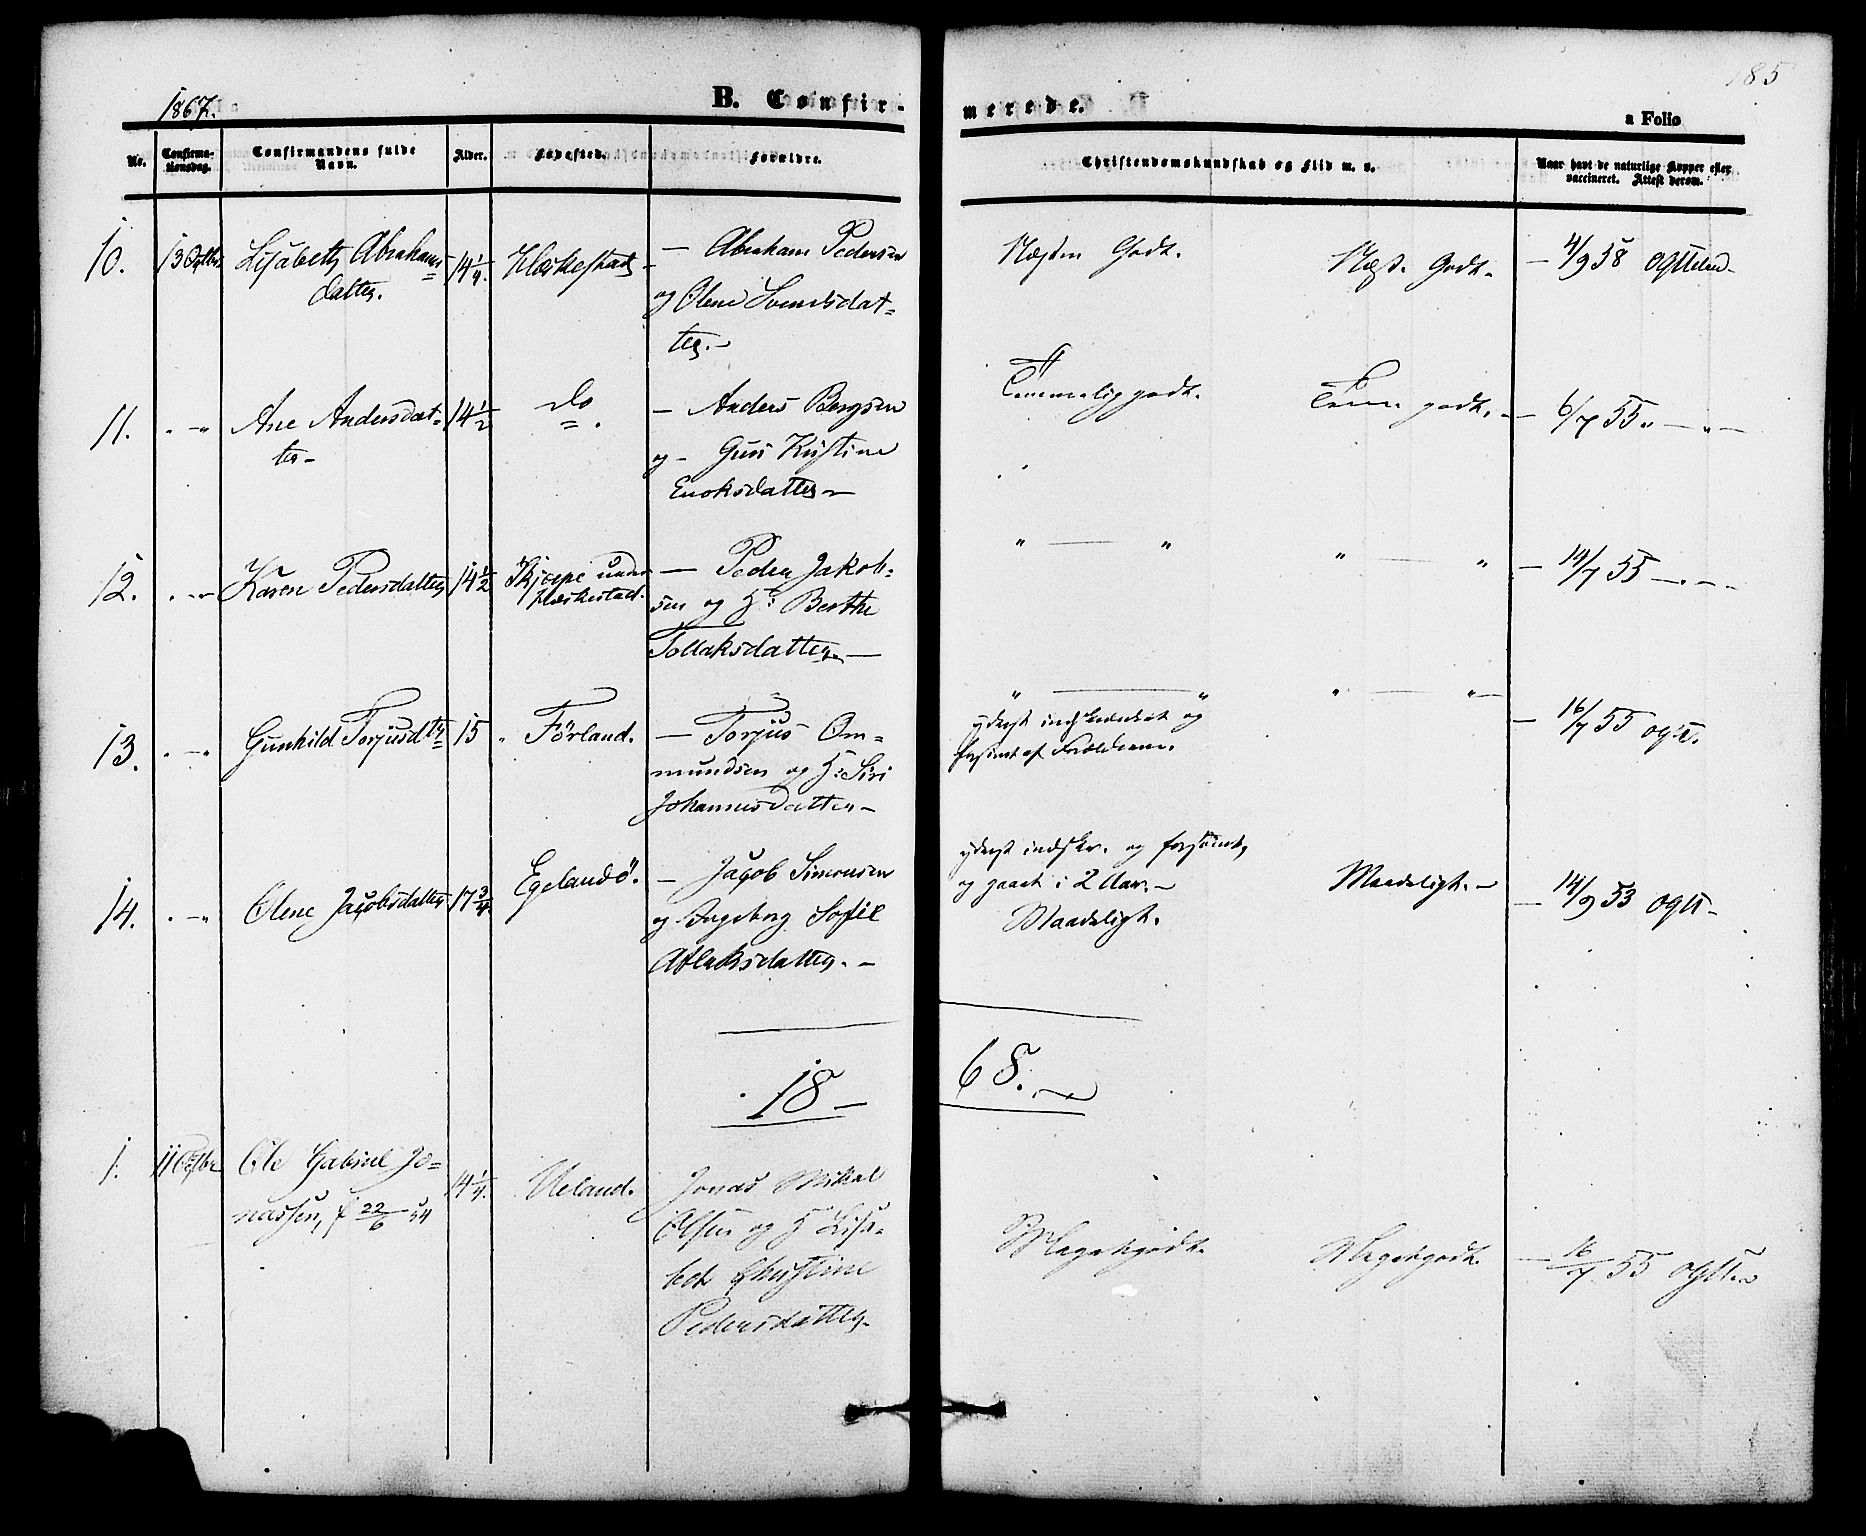 185
1867.
B. Confir-
merede.
a Folio
Nr.
Confirma-
tionsdag.
Confirmandens fulde
Navn.
Alder.
Fødested.
Forældre.
Christendomskundskab og Flid m. v.
Naar havt de naturlige Kopper eller
vaccineret. Attest derom.
10.
13 Octbr
Lisabeth Abrahams=
datter.
14 1/4.
Heskestad
— Abraham Pedersen
og Olene Svendsdat=
ter.—
Næsten Godt.
Næst. Godt.
— 4/9 58
11.
" — "
Ane Andersdat=
ter—
14 1/2
do
— Anders Bergsen
og — Guri Kristine
Enoksdatter —
Temmelig godt.
Tem. godt. —
— 6/7 55 " — " —
12.
" — "
Karen Pedersdatter
14 1/2
Skjæpe under
Heskestad.
— Peder Jakob=
sen og H: Berthe
Tollaksdatter —
" — "
" — "
— 14/7 55 — " —
13.
" — "
Gunhild Torjusdtr
15
Förland.
— Torjus Om=
mundsen og H: Siri
Johannesdatter —
" — "
" — "
yderst indskrænket og
forsömt af Forældrene.
— 16/7 55
14.
" — "
Olene Jacobsdatter
17 3/4.
Egelandö.
— Jacob Simonsen
og Ingeborg Sofie
Atlaksdatter. —
yderst indskr. og forsömt,
og gaaet i 2 Aar. —
Maadeligt.
Maadeligt. —
— 14/9 53
18 —
68.
1.
11 Octbr
Ole Gabriel Jo=
nassen, f 22/6 54
14 1/4.
Ueland.
Jonas Mikal
Olsen og H Lisa=
bet Christine
Pedersdatter.
Megetgodt.
Megetgodt.
— 16/7 55